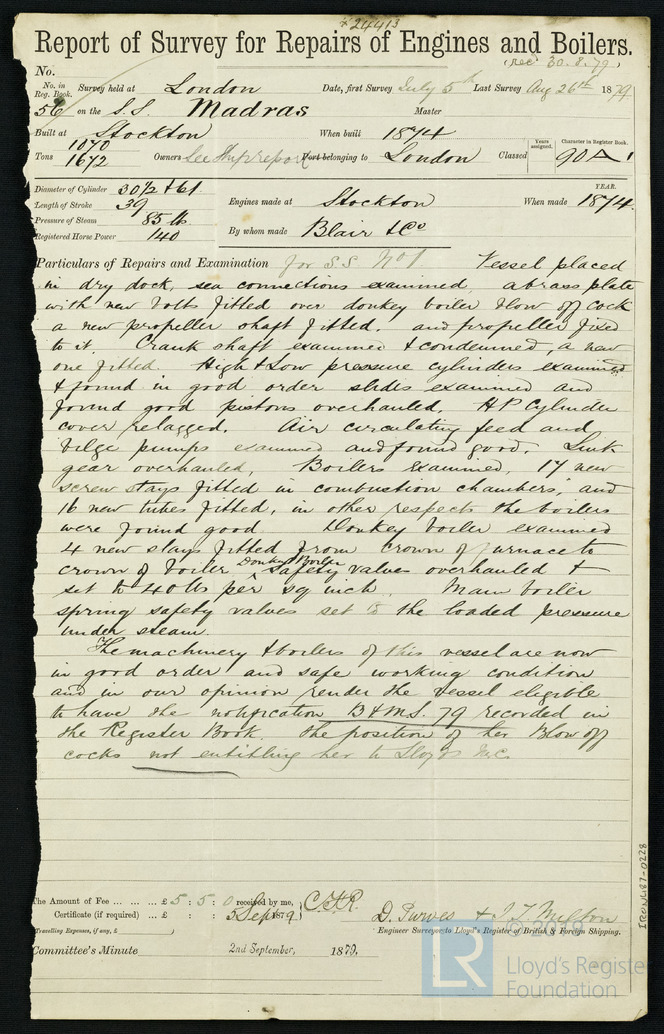 * 24413
Report of Survey for Repairs of Engines and Boilers.
(rec 30.8.79)
No.
No. in Reg. Book. Survey held at London Date, first Survey July 5th Last Survey Aug 26th 1879
56 on the S.S. Madras Master
Built at Stockton When built 1874
Tons 1070 1672 Owners See Ship report Port belonging to London Classed Years assigned. Character in Register Book. 90A1
Diameter of Cylinder 30½ & 61 YEAR.
Length of Stroke 39 Engines made at Stockton When made 1874.
Pressure of Steam 85 lbs
Registered Horse Power 140 By whom made Blair & Co
Particulars of Repairs and Examination for S.S. No 1 Vessel placed
in dry dock, sea connections examined, a brass plate
with new bolts fitted over donkey boiler blow off cock
a new propeller shaft fitted. and propeller fixed
to it. Crank shaft examined & condemned, a new
one fitted. High & Low pressure cylinders examined
& found in good order slides examined and
found good pistons overhauled. HP Cylinder
cover relagged. Air circulating feed and
bilge pumps examined and found good. Link
gear overhauled, Boilers examined, 17 new
screw stays fitted in combustion chambers, and
16 new tubes fitted, in other respects the boilers
were found good Donkey boiler examined
4 new stays fitted from crown of furnace to
crown of boiler Donkey Boiler safety valves overhauled &
set to 40 lbs per sq inch. Main boiler
spring safety valves set to the loaded pressure
under steam.
The machinery & boilers of this vessel are now
in good order and safe working condition
and in our opinion render the vessel eligible
to have the notification B&MS. 79 recorded in
the Register Book. The position of her Blow off
cocks not entitling her to Lloyds M.C.
The Amount of Fee ... ... ... £ 5 : 5 : 0 received by me,
Certificate (if required) ... £ : : 5 Sep 1879
Travelling Expenses, if any, £ )
D. Purves & J. T. Milton
Engineer Surveyor to Lloyd's Register of British & Foreign Shipping.
Committee's Minute 2nd September, 1879.
IRON487-0228
LR
Lloyd's Register
Foundation